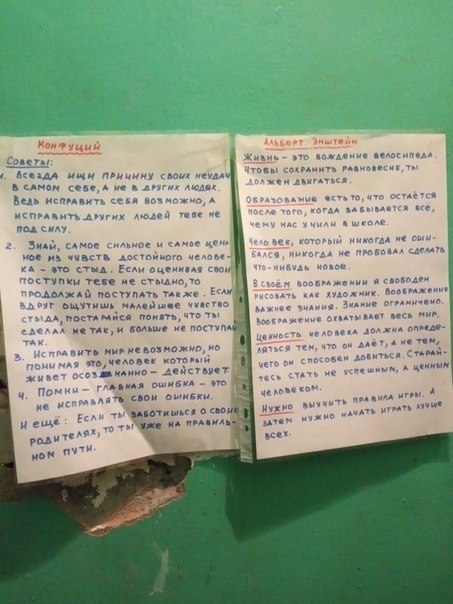 Конфуций
Советы:
1. Всегда ищи причину своих неудач
в самом себе, а не в других людях.
Ведь исправить себя возможно, а
исправить других людей тебе не
под силу.
2. Знай, самое сильное и самое цен-
ное из чувств достойного челове-
ка - это стыд. Если оценивая свои
поступки тебе не стыдно, то
продолжай поступать также. Если
вдруг ощутишь малейшее чувство
стыда, постарайся понять, что ты
сделал не так, и больше не поступай
так.
3. Исправить мир невозможно, но
понимая это, человек который
живёт осознанно - действует.
4. Помни - главная ошибка - это
не исправлять свои ошибки.
И ещё: Если ты заботишься о своих
родителях, то ты уже на правиль-
ном пути.
Альберт Энштейн
Жизнь - это вождение велосипеда.
Чтобы сохранить равновесие, ты
должен двигаться.
Образование есть то, что остаётся
после того, когда забывается всё,
чему нас учили в школе.
Человек, который никогда не оши-
бался, никогда не пробовал сделать
что-нибудь новое.
В своём воображении я свободен
рисовать как художник. Воображение
важнее знания. Знание ограничено.
Воображение охватывает весь мир.
Ценность человека должна опреде-
ляться тем, что он даёт, а не тем,
чего он способен добиться. Старай-
тесь стать не успешным, а ценным
человеком.
Нужно выучить правила игры. А
затем нужно начать играть лучше
всех.